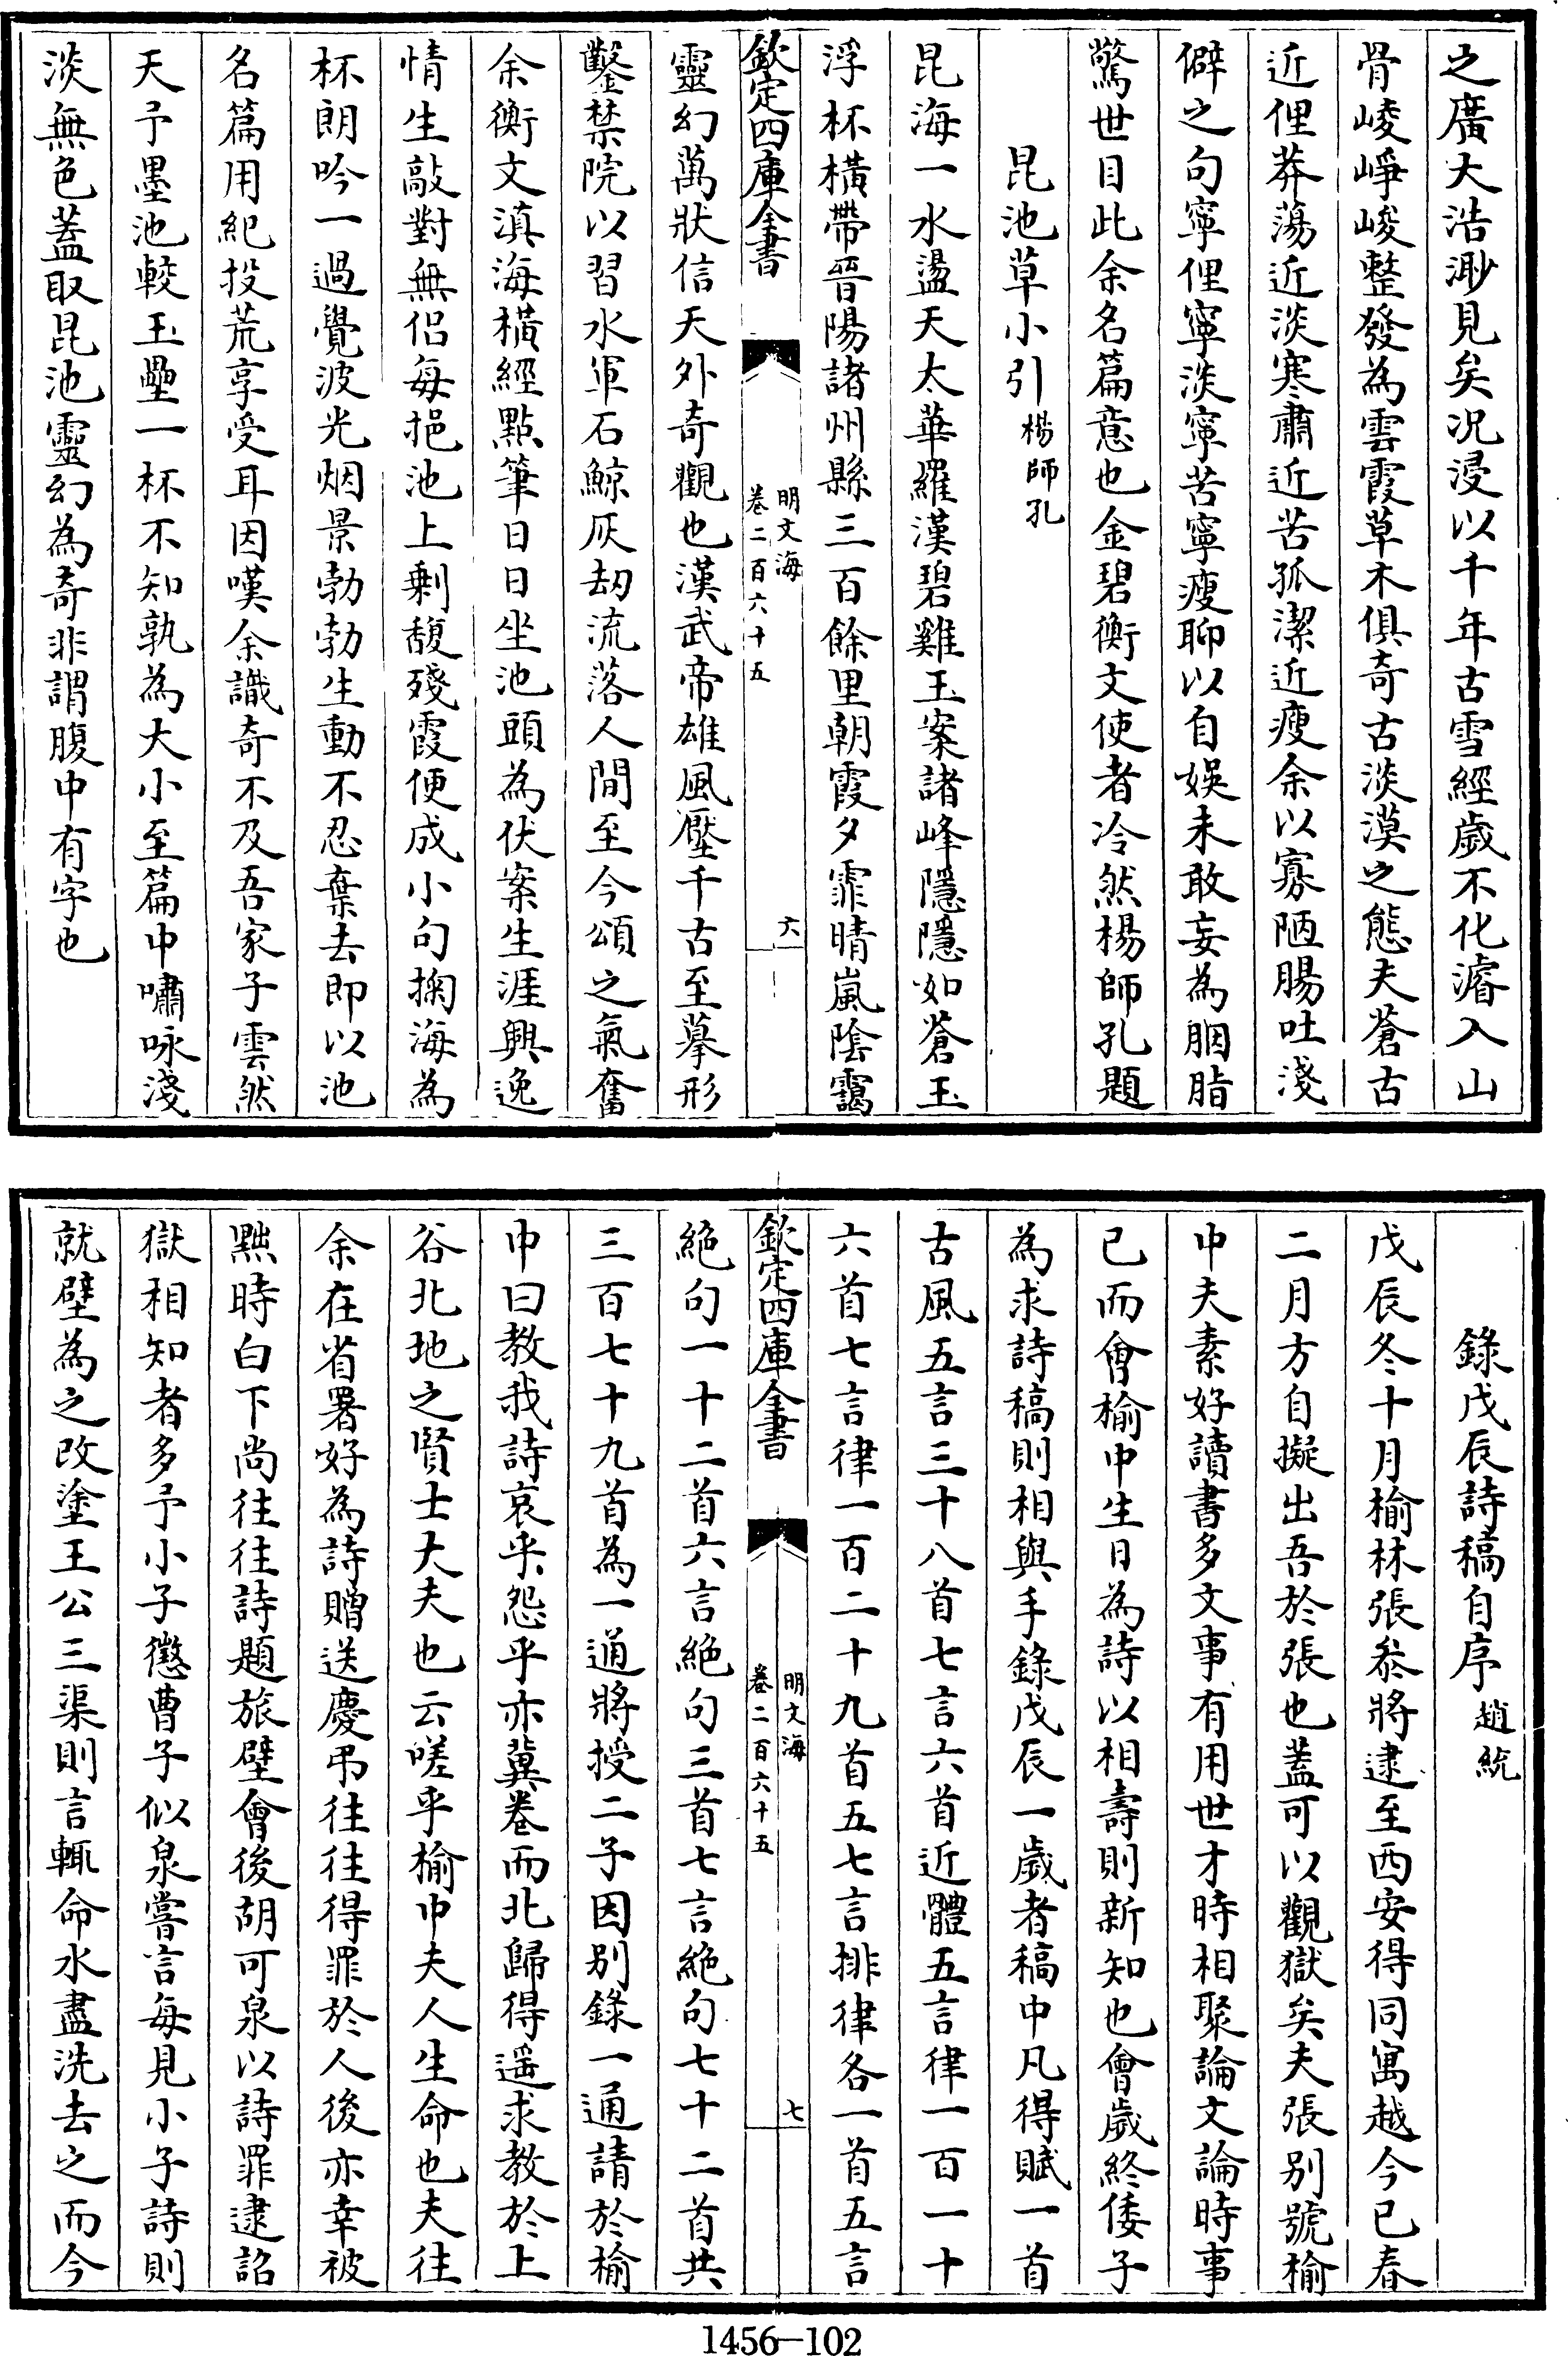 之廣大浩渺見矣況浸以千年古雪經歲不化濬入山
骨崚崢峻整發為雲霞草木俱奇古淡漠之態夫蒼古
近俚莽蕩近淡寒肅近苦孤潔近瘦余以寡陋腸吐淺
僻之句寧俚寧淡寧苦寧瘦聊以自娛未敢妄為胭脂
驚世目此余名篇意也金碧衡文使者冷然楊師孔題
昆池草小引 楊師孔
昆海一水盪天太華羅漢碧雞玉案諸峰隱隱如蒼玉
浮杯橫帶晉陽諸州縣三百餘里朝霞夕霏晴嵐陰靄
欽定四庫全書 明文海 卷二百六十五 六
靈幻萬狀信天外奇觀也漢武帝雄風壓千古至摹形
鑿禁院以習水軍石鯨灰刼流落人間至今頌之氣奮
余衡文滇海橫經點筆日日坐池頭為伏案生涯興逸
情生敲對無侶每挹池上剩馥殘霞便成小句掬海為
杯朗吟一過覺波光烟景勃勃生動不忍棄去即以池
名篇用紀投荒享受耳因嘆余識奇不及吾家子雲然
天予墨池較玉壘一杯不知孰為大小至篇中嘯咏淺
淡無色蓋取昆池靈幻為奇非謂腹中有字也
錄戊辰詩稿自序 趙統
戊辰冬十月榆林張叅將逮至西安得同寓越今已春
二月方自擬出吾於張也蓋可以觀獄矣夫張別號榆
中夫素好讀書多文事有用世才時相聚論文論時事
已而會榆中生日為詩以相壽則新知也會歲終倭子
為求詩稿則相與手錄戊辰一歲者稿中凡得賦一首
古風五言三十八首七言六首近體五言律一百一十
六首七言律一百二十九首五七言排律各一首五言
欽定四庫全書 明文海 卷二百六十五 七
絕句一十二首六言絕句三首七言絕句七十二首共
三百七十九首為一通將授二子因別錄一通請於榆
中曰教我詩哀乎怨乎亦冀卷而北歸得遥求教於上
谷北地之賢士大夫也云嗟乎榆中夫人生命也夫往
余在省署好為詩贈送慶弔往往得罪於人後亦幸被
黜時白下尚往往詩題旅壁會後胡可泉以詩罪逮詔
獄相知者多予小子懲曹子似泉嘗言每見小子詩則
就壁為之改塗王公三渠則言輒命水盡洗去之而今
1456—102